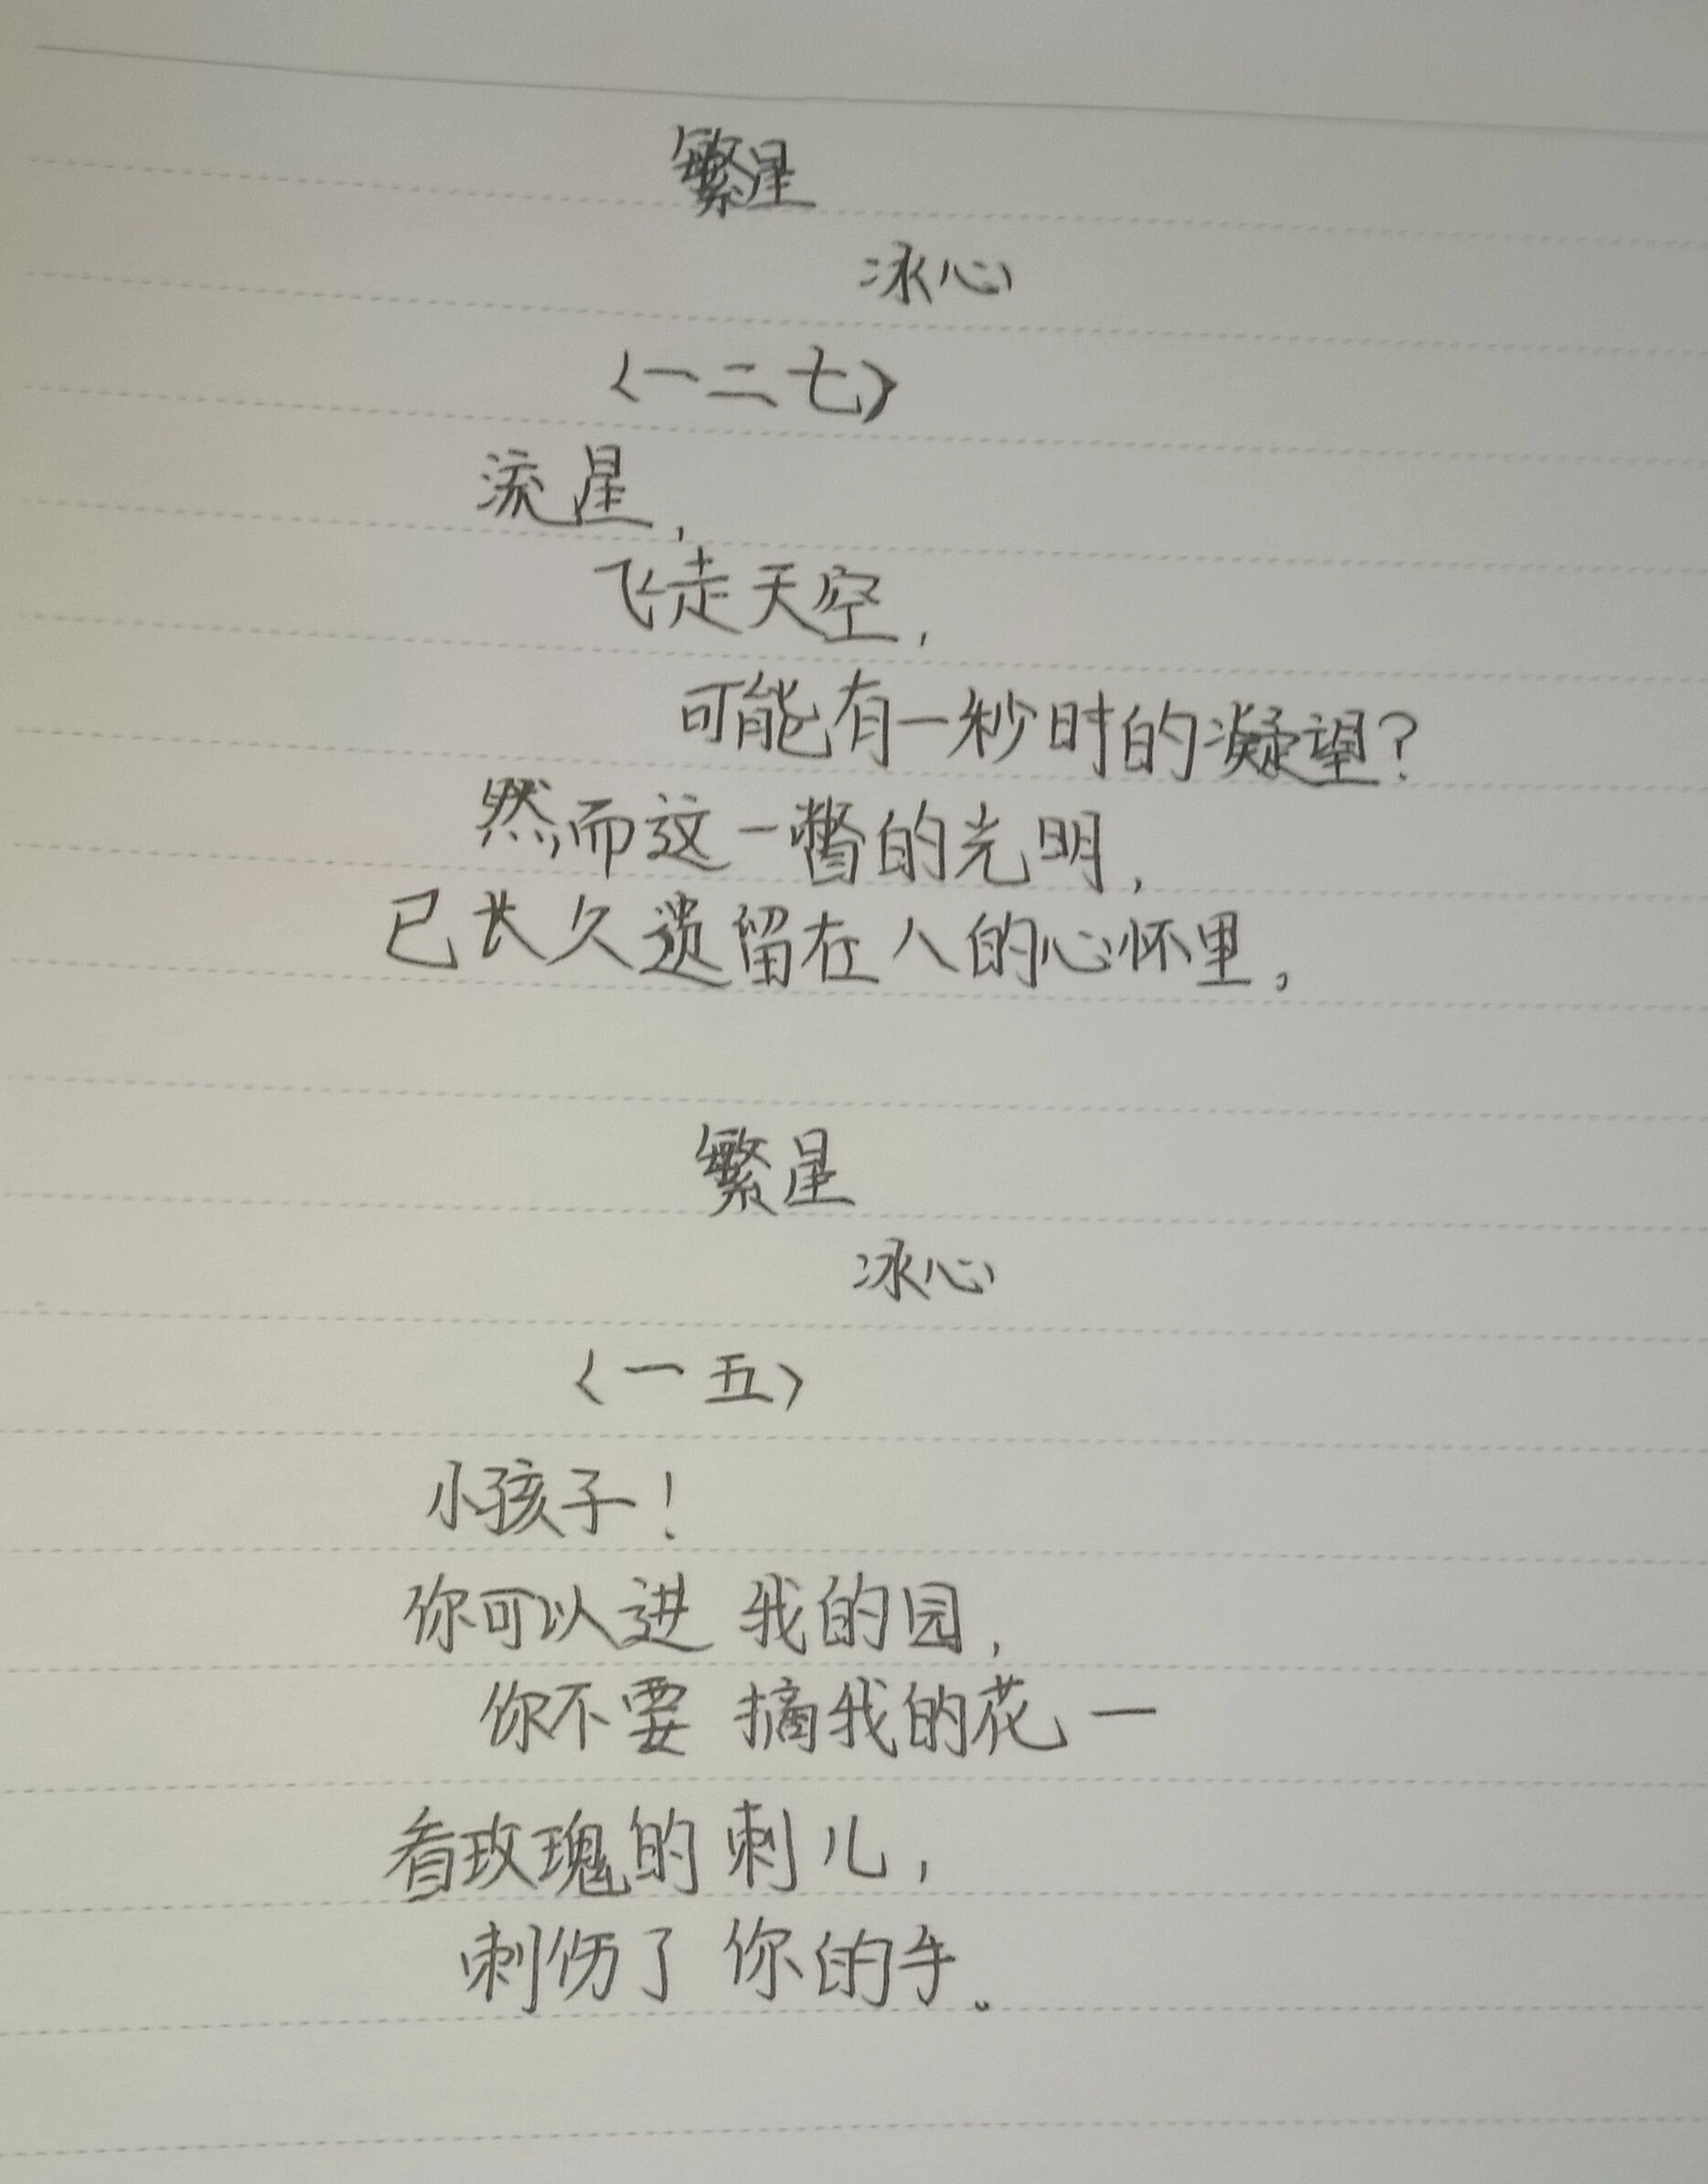 繁星
冰心
〈一二七〉
流星，
飞走天空，
可能有一秒时的凝望？
然而这一瞥的光明，
已长久遗留在人的心怀里，
繁星
冰心
〈一五〉
小孩子！
你可以进我的园，
你不要摘我的花一
看玫瑰的刺儿，
刺伤了你的手。